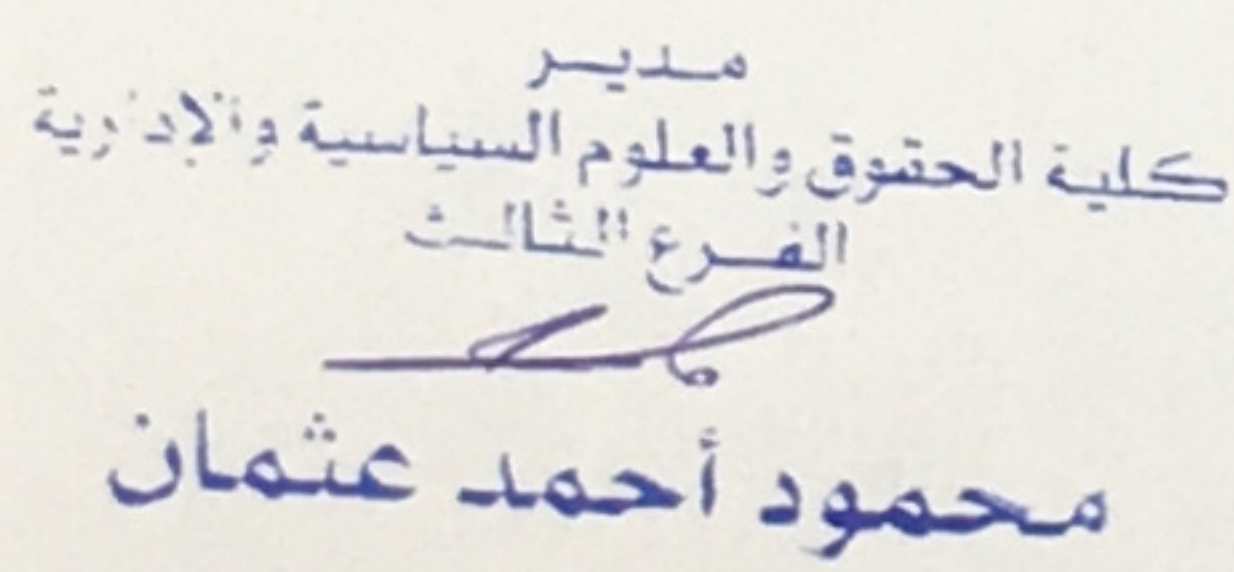 مدير
كلية الحقوق والعلوم السياسية والإدارية
الفرع الثالث
محمود أحمد عثمان